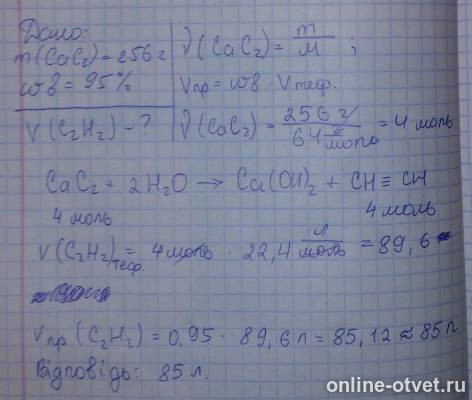 Дано:
m(CaC₂)=256 г
wв = 95%
V(C₂H₂) - ?
ν(CaC₂) = m/M ;
Vпр = wв · Vтеор.
ν(CaC₂) = 256 г / 64 г/моль = 4 моль
CaC₂ + 2H₂O → Ca(OH)₂ + CH ≡ CH
4 моль 4 моль
V(C₂H₂)теор. = 4 моль · 22,4 л/моль = 89,6
Vпр (C₂H₂) = 0,95 · 89,6 л = 85,12 ≈ 85 л
Відповідь: 85 л.
online-otvet.ru